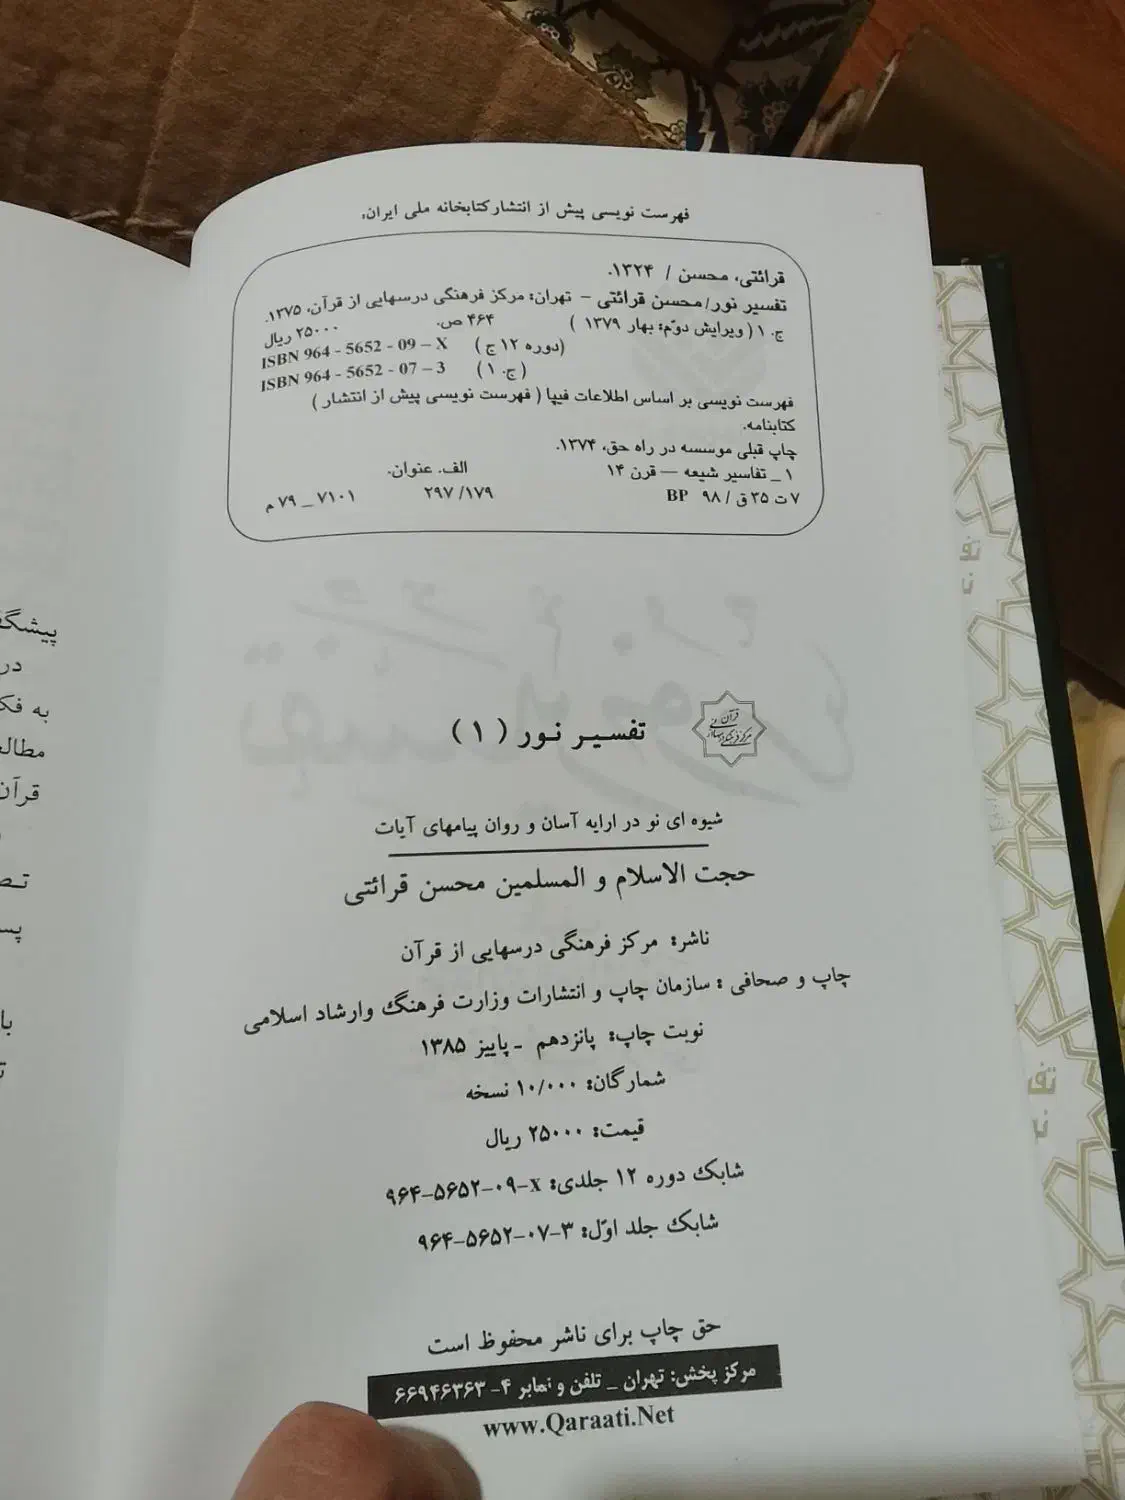 فهرست نویسی پیش از انتشار کتابخانه ملی ایران،
قرائتی، محسن / ۱۳۲۴.
تفسیر نور/ محسن قرائتی – تهران: مرکز فرهنگی درسهایی از قرآن، ۱۳۷۵.
ج. ۱ ( ویرایش دوّم: بهار ۱۳۷۹ ) ۴۶۴ ص. ۲۵۰۰۰ ریال
(دوره ۱۲ ج ) ISBN 964 - 5652 - 09 – X
( ج. ۱ ) ISBN 964 - 5652 - 07 – 3
فهرست نویسی بر اساس اطلاعات فیپا ( فهرست نویسی پیش از انتشار )
کتابنامه.
چاپ قبلی موسسه در راه حق، ۱۳۷۴.
۱ _ تفاسیر شیعه — قرن ۱۴ الف. عنوان.
۷ ت ۳۵ ق / ۹۸ BP ۲۹۷/ ۱۷۹ ۷۱۰۱ _ ۷۹ م
قرآن
مرکز فرهنگی درسهایی از
تفسیر نور ( ۱ )
شیوه ای نو در ارایه آسان و روان پیامهای آیات
حجت الاسلام و المسلمین محسن قرائتی
ناشر: مرکز فرهنگی درسهایی از قرآن
چاپ و صحافی : سازمان چاپ و انتشارات وزارت فرهنگ وارشاد اسلامی
نوبت چاپ: پانزدهم - پاییز ۱۳۸۵
شمارگان: ۱۰/۰۰۰ نسخه
قیمت: ۲۵۰۰۰ ریال
شابک دوره ۱۲ جلدی: x-۹۶۴-۵۶۵۲-۰۹
شابک جلد اوّل: ۳-۰۷-۵۶۵۲-۹۶۴
حق چاپ برای ناشر محفوظ است
مرکز پخش: تهران _ تلفن و نمابر ۴- ۶۶۹۴۶۳۶۳
www.Qaraati.Net
در
به فک
قرآن